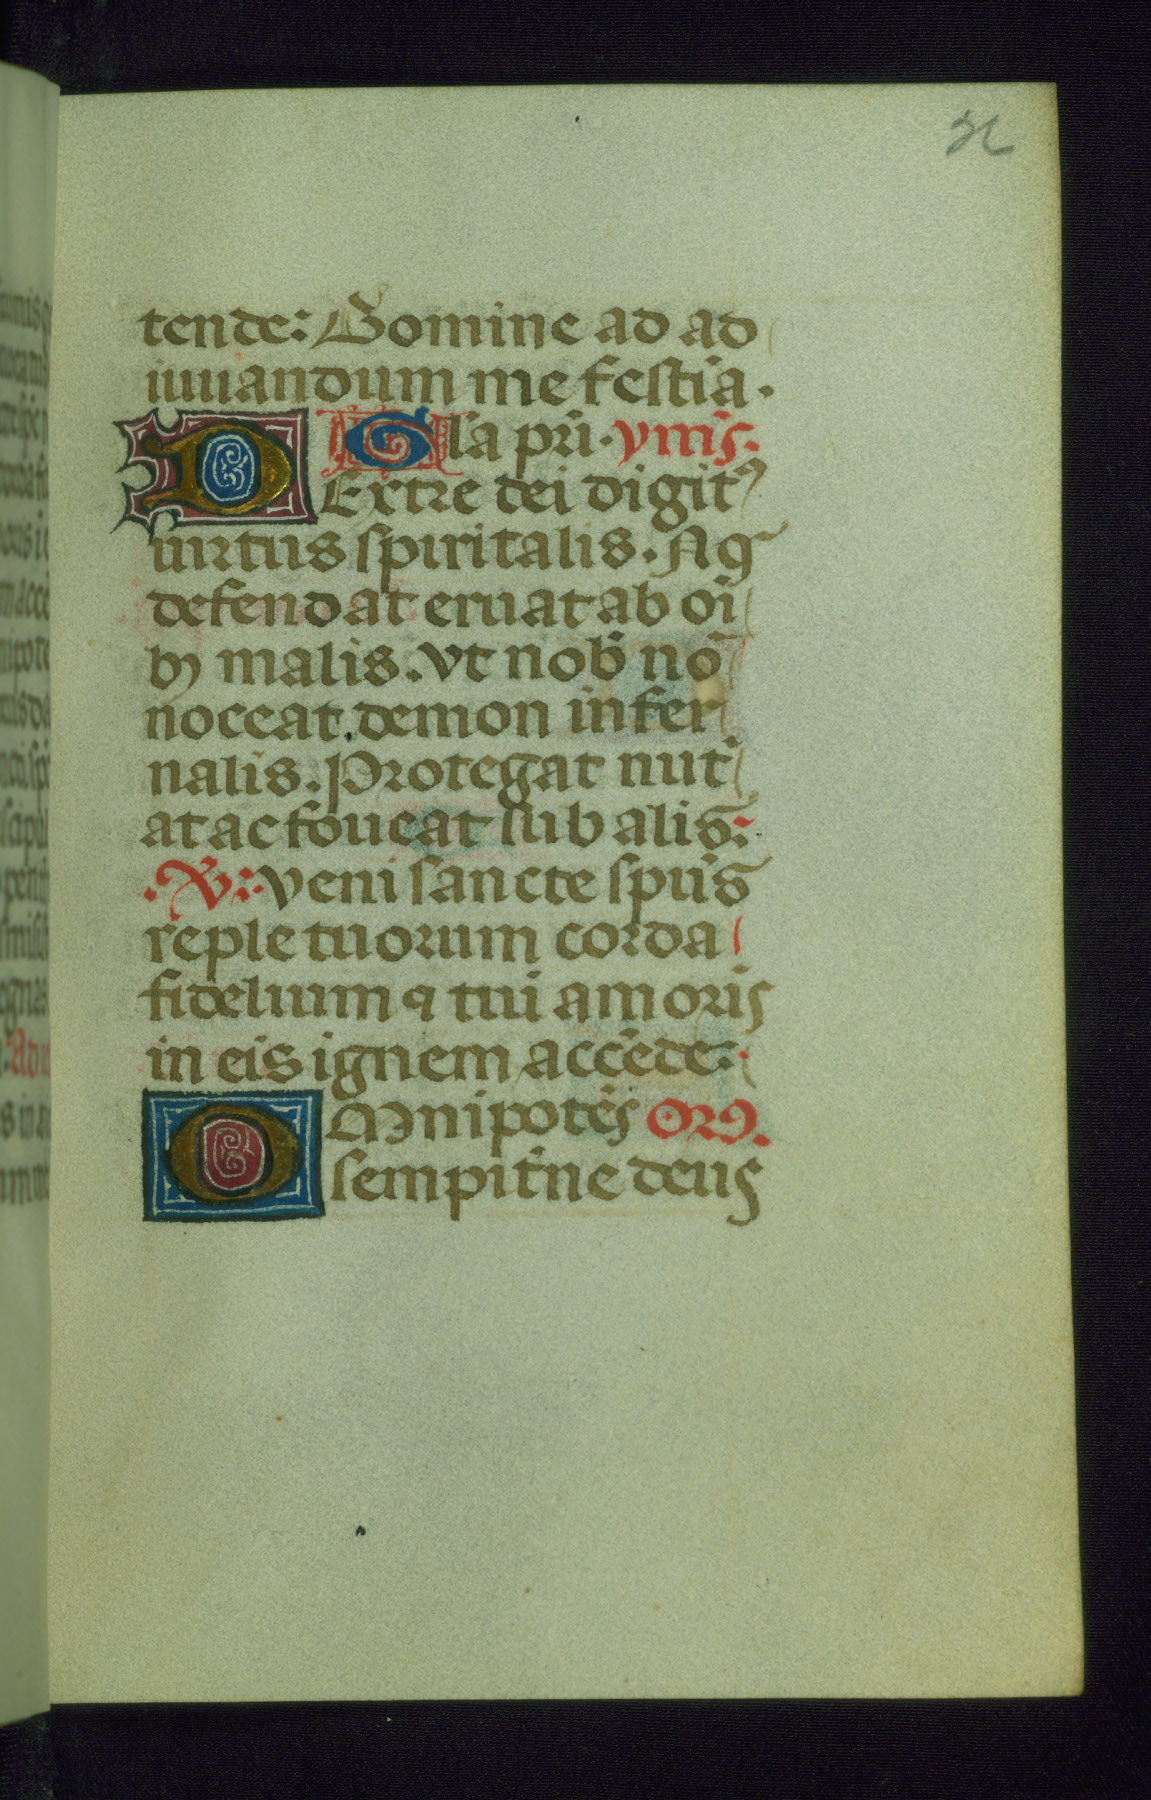 32
tende: Domine ad ad
iuuandum me festīa.
Gl'a pr̄i. yms.
Dextre dei digitꝰ
uirtus spiritalis. Nos
defendat eruat ab oī
bꝫ malis. vt nob̄ nō
noceat demon infer
nalis. Protegat nut̄
at ac foueat sub alis:
.V. veni sancte spūs
reple tuorum corda
fidelium ꝛ tui amoris
in eis ignem accēde:
Omnipotēs Oro.
sempit̄ne deus